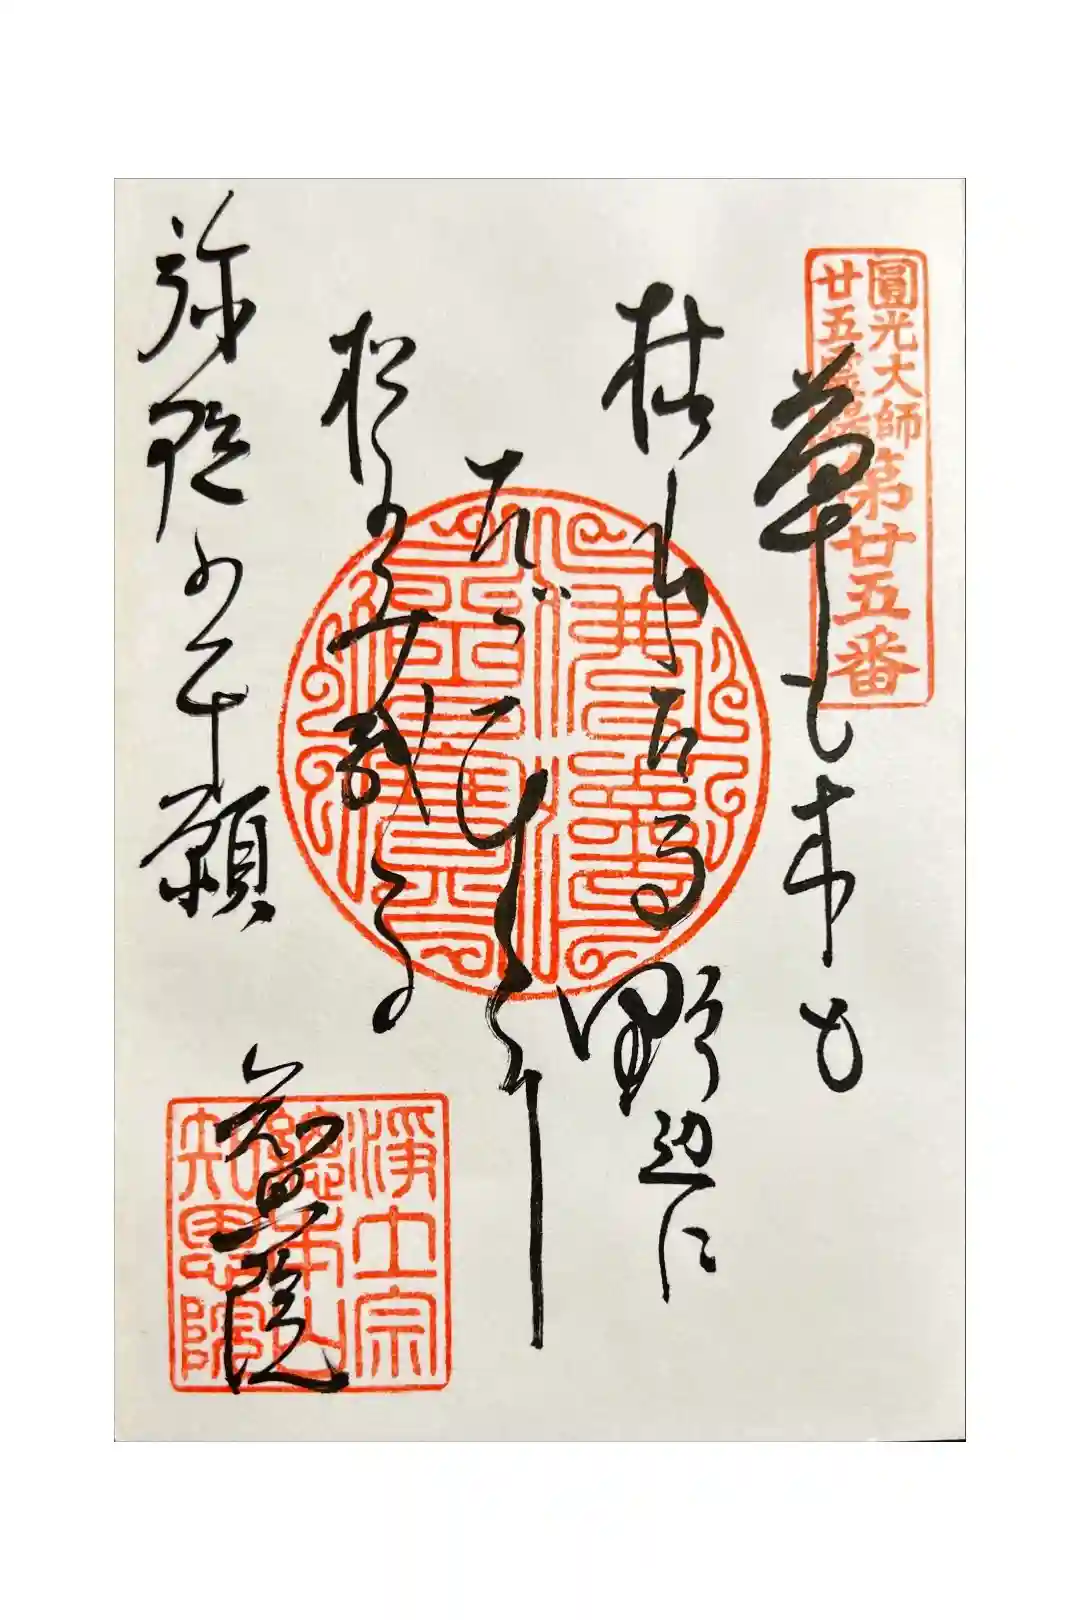 圓光大師
廿五霊場
第廿五番
草も木も
枯れたる野辺に
たゞひとり
松のみ残る
弥陀の本願
知恩院
佛法僧寶
淨土宗
總本山
知恩院